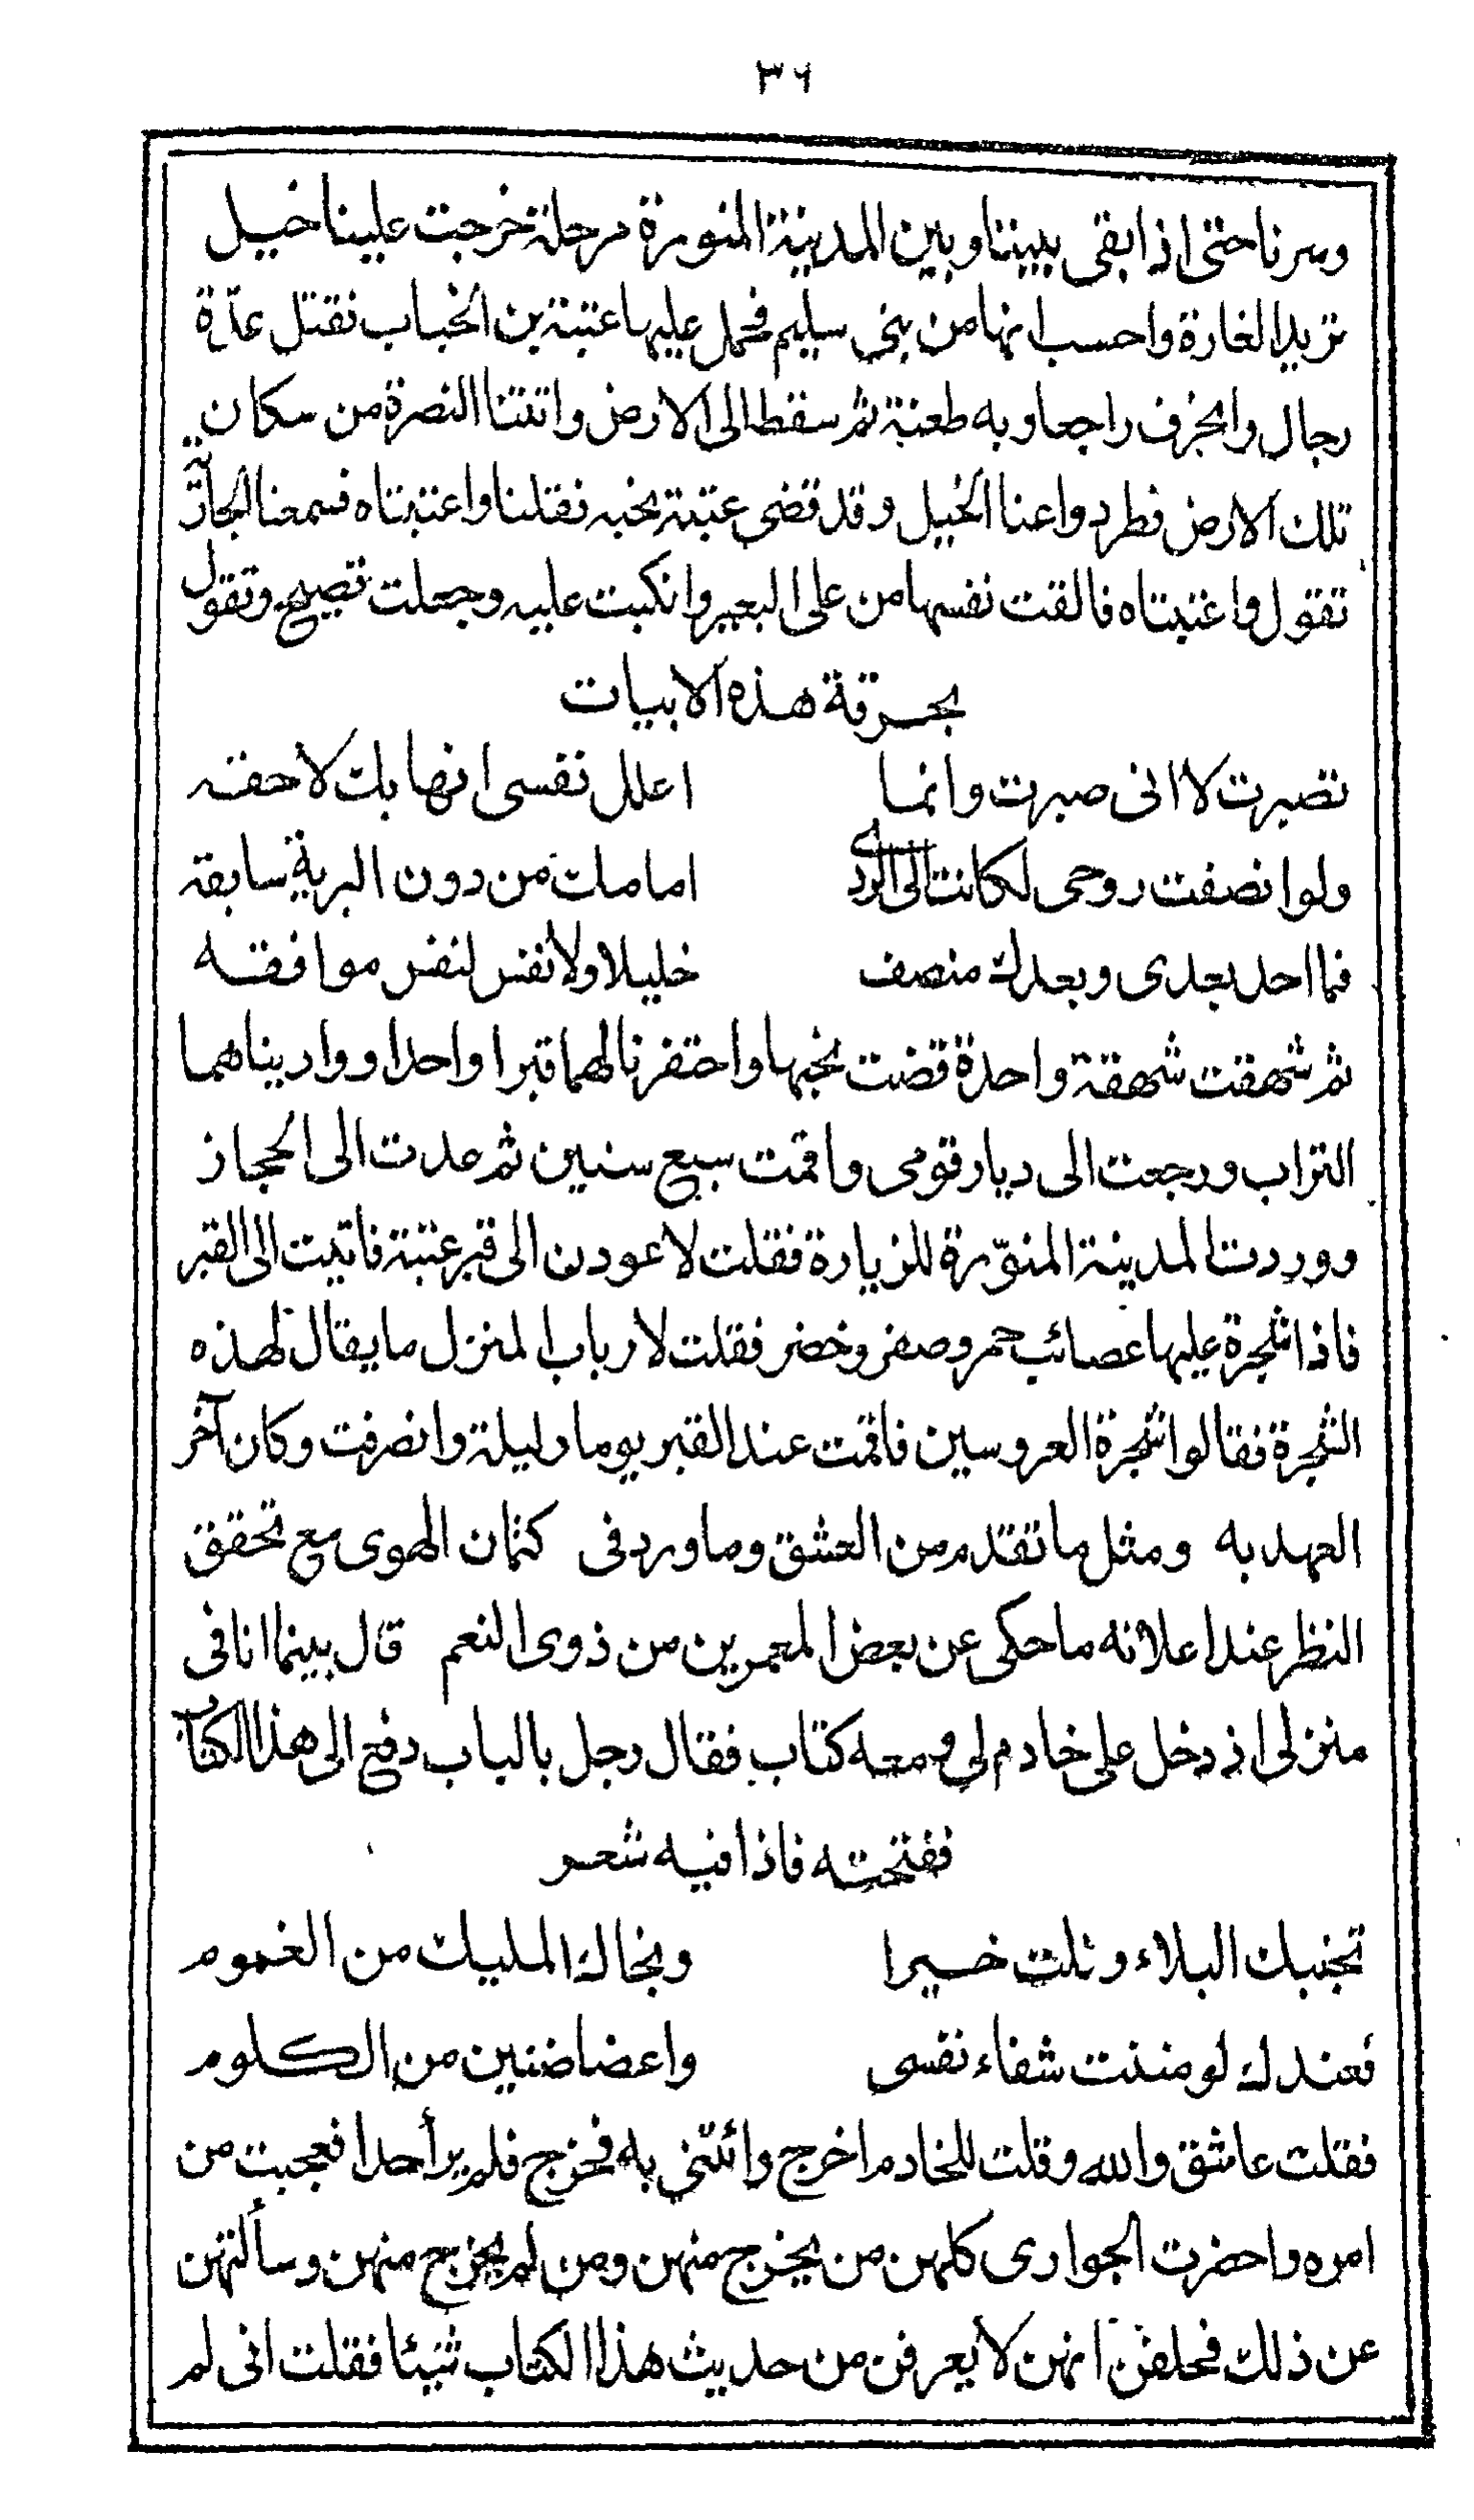 ٣٦
وسرنا حتى اذا بقى بيننا وبين المدينة المنورة مرحلة خرجت علينا خيل
تريد الغارة واحسب انها من بنى سليم فحمل عليها عتبة بن الخباب فقتل عدّة
رجال وانحرف راجعا وبه طعنة ثم سقط الى الارض واتتنا النصرة من سكان
تلك الارض فطردوا عنا الخيل وقد قضى عتبة نحبه فقلنا واعتبتاه فسمعنا الجارية
تقول واعتبتاه فالقت نفسها من على البعير وانكبت عليه وجعلت تصيح وتقول
بحرقة هذه الابيات
تصبرت لا انى صبرت وانما اعلل نفسى انها بك لاحقه
ولو انصفت روحى لكانت الى الردى امامك من دون البرية سابقه
فما احد بعدى وبعدك منصف خليلا ولا نفس لنفس موافقه
ثم شهقت شهقة واحدة قضت نحبها واحتفرنا لهما قبرا واحدا وواريناهما
التراب ورجعت الى ديار قومى واقمت سبع سنين ثم عدت الى الحجاز
ووردت المدينة المنوّرة للزيارة فقلت لاعودن الى قبر عتبة فاتيت الى القبر
فاذا شجرة عليها عصائب حمر وصفر وخضر فقلت لارباب المنزل ما يقال لهذه
الشجرة فقالوا شجرة العروسين فاقمت عند القبر يوما وليلة وانصرفت وكان آخر
العهد به ومثل ما تقدم من العشق وما ورد فى كتمان الهوى مع تحقق
النظر عند اعلانه ما حكى عن بعض المعمرين من ذوى النعم قال بينما انا فى
منزلى اذ دخل على خادم لى ومعه كتاب فقال رجل بالباب دفع الى هذا الكتاب
ففتحته فاذا فيه شعر
تجنبك البلاء ونلت خيرا ونجاك المليك من الغموم
فعندك لو مننت شفاء نفسى واعضا ضنين من الكلوم
فقلت عاشق والله وقلت للخادم اخرج وائتنى به فخرج فلم ير أحدا فعجبت من
امره واحضرت الجوارى كلهن من يخرج منهن ومن لم يخرج منهن وسألتهن
عن ذلك فحلفن انهن لا يعرفن من حديث هذا الكتاب شيئا فقلت انى لم